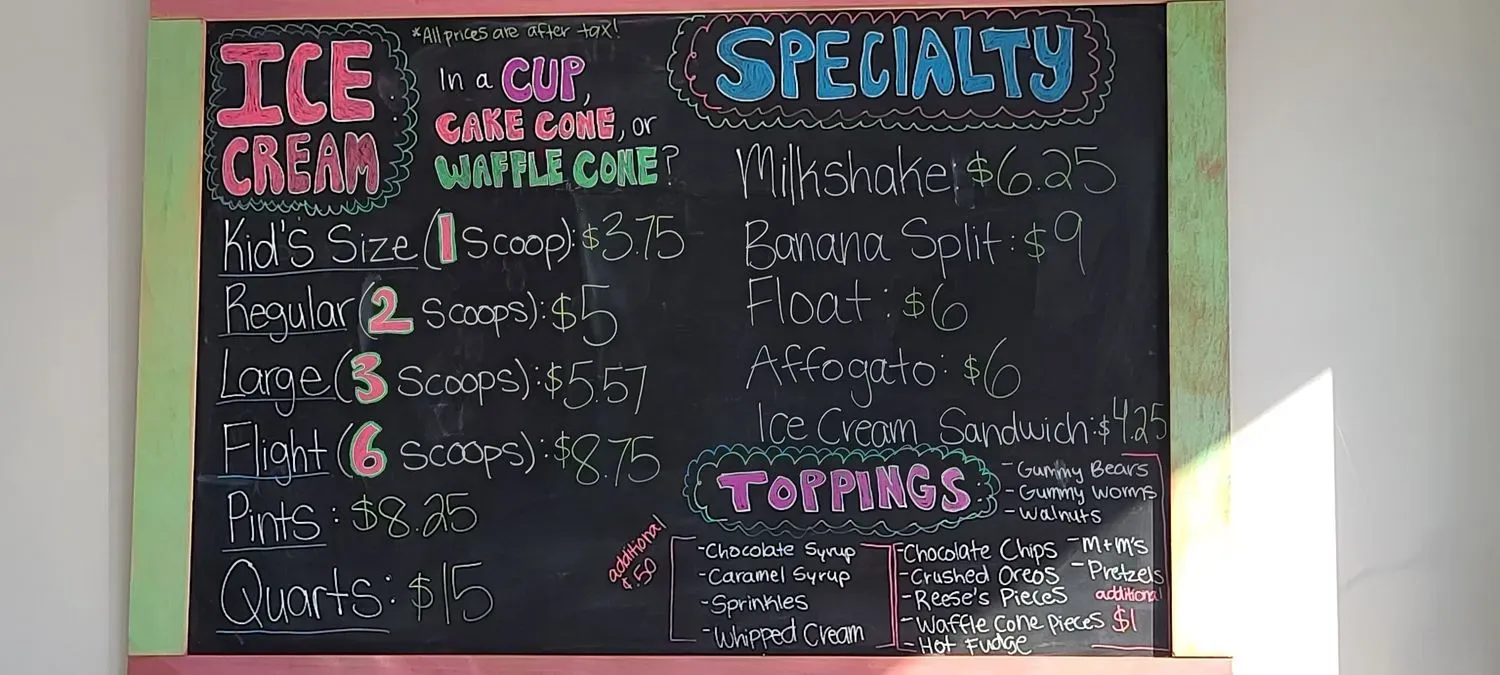 *All prices are after tax!
ICE
CREAM
In a CUP,
CAKE CONE, or
WAFFLE CONE?
Kid's Size (1 Scoop): $3.75
Regular (2 Scoops): $5
Large (3 Scoops): $5.57
Flight (6 Scoops): $8.75
Pints: $8.25
Quarts: $15
SPECIALTY
Milkshake: $6.25
Banana Split: $9
Float: $6
Affogato: $6
Ice Cream Sandwich: $4.25
TOPPINGS
additional
$.50
-Chocolate Syrup
-Caramel Syrup
-Sprinkles
-Whipped Cream
-Gummy Bears
-Gummy Worms
-Walnuts
-Chocolate Chips
-Crushed Oreos
-Reese's Pieces
-Waffle Cone Pieces
-Hot Fudge
-M+M's
-Pretzels
additional
$1